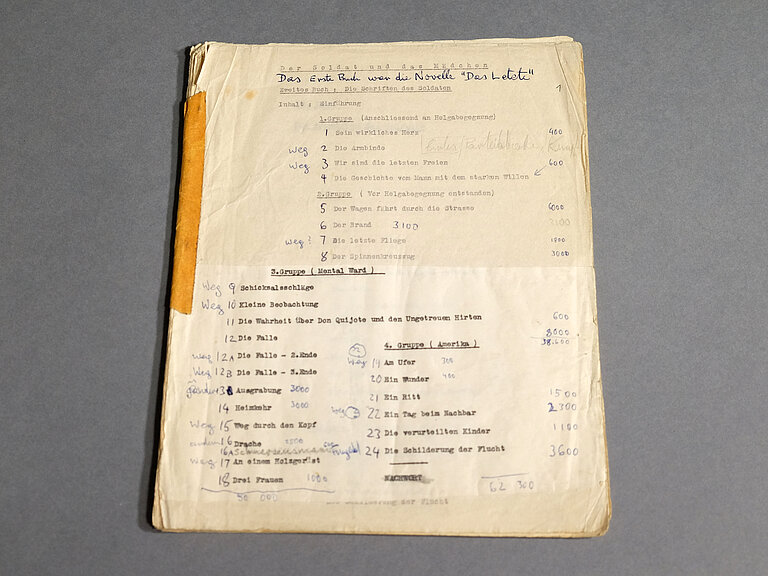 Der Soldat und das Mädchen
Das Erste Buch war die Novelle "Das Letzte"
Zweites Buch ; Die Schriften des Soldaten 1
Inhalt ; Einführung
1.Gruppe (Anschliessend an Helgabegegnung)
1 Sein wirkliches Herz 400
weg 2 Die Armbinde
weg 3 Wir sind die letzten Freien 600
4 Die Geschichte vom Mann mit dem starken Willen
2.Gruppe ( Vor Helgabegegnung entstanden)
5 Der Wagen fährt durch die Strasse 6000
6 Der Brand 3100 3100
weg? 7 Die letzte Fliege 1800
8 Der Spinnenkreuzzug 3000
3.Gruppe ( Mental Ward )
Weg 9 Schicksalsschläge
Weg 10 Kleine Beobachtung
11 Die Wahrheit über Don Quijote und den Ungetreuen Hirten 600
12 Die Falle 8000
38.600
weg 12A Die Falle - 2.Ende
Weg 12B Die Falle - 3.Ende
13 Ausgrabung 3000
14 Heimkehr 3000
Weg 15 Weg durch den Kopf
16 Drache
16A
weg 17 An einem Holzgerüst
18 Drei Frauen 1000
50 000
4. Gruppe ( Amerika )
weg 19 Am Ufer 300
20 Ein Wunder 400
21 Ein Ritt 1500
weg 22 Ein Tag beim Nachbar 2300
23 Die verurteilten Kinder 1100
24 Die Schilderung der Flucht 3600
NACHWORT
62 300
Die Schilderung der Flucht